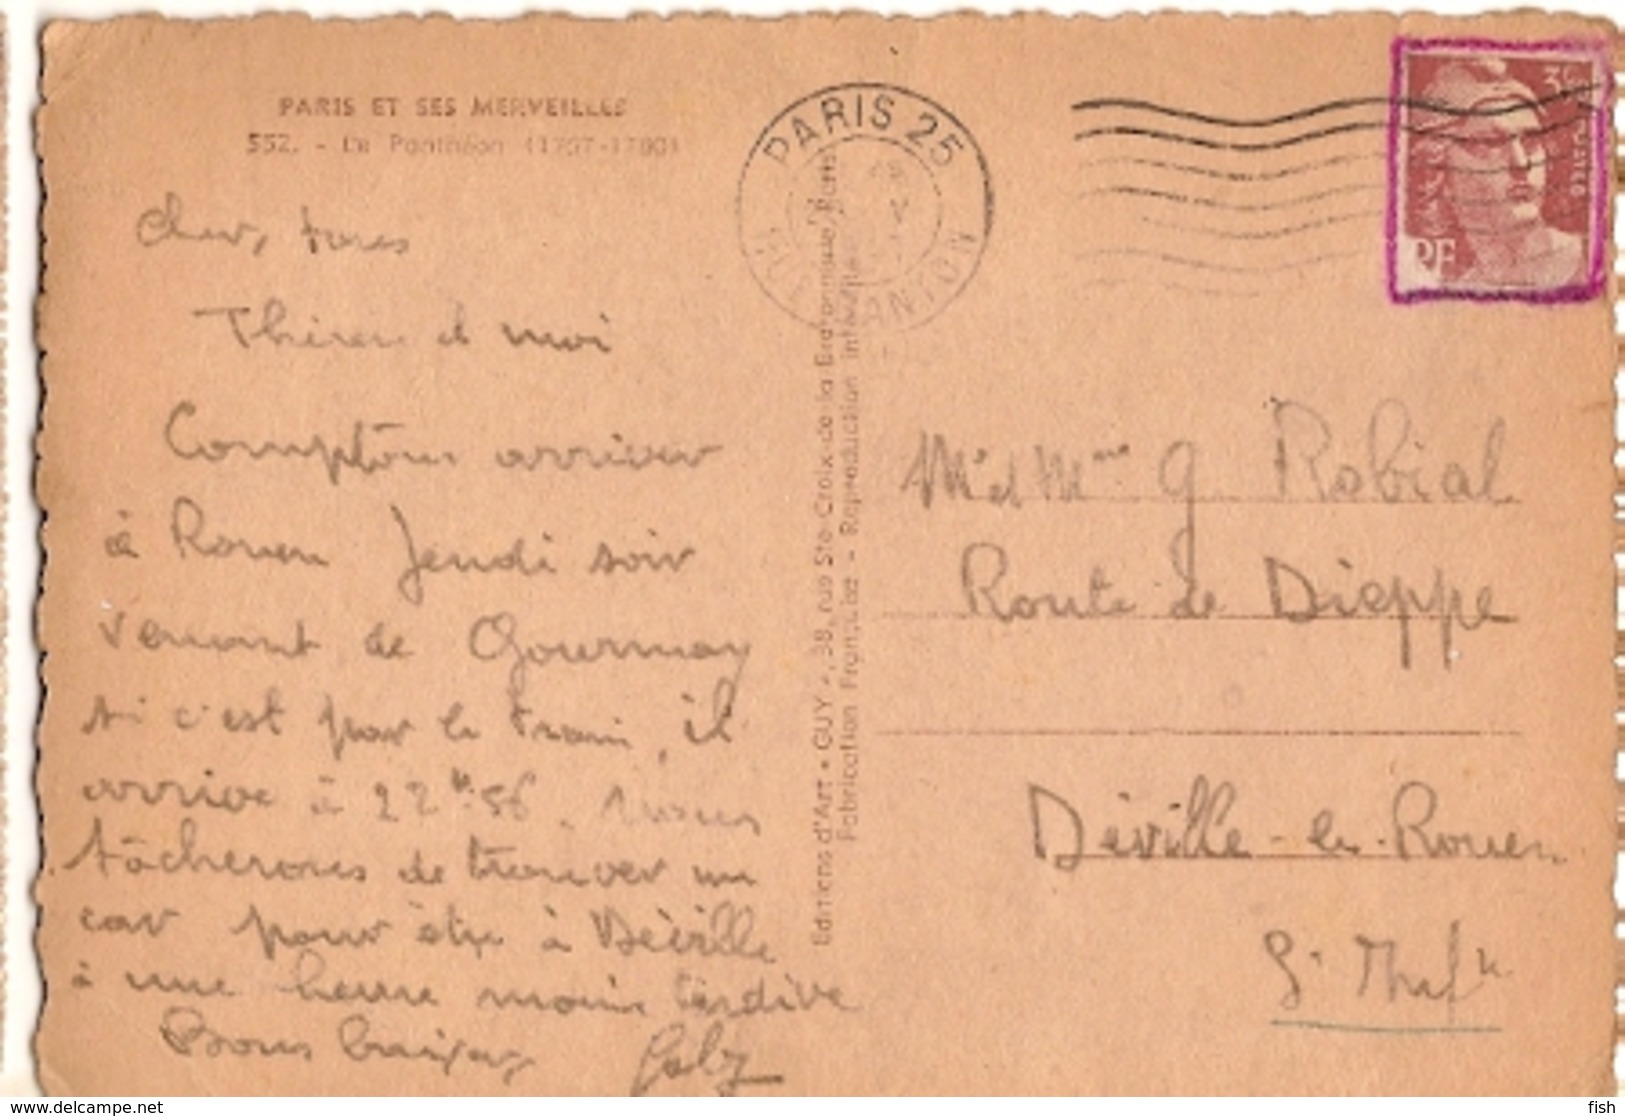 PARIS ET SES MERVEILLES
552. - Le Panthéon (1757-1780)
Chers tous
Thérèse et moi
Comptons arriver
à Rouen Jeudi soir
venant de Gournay
si c'est par le train, il
arrive à 22h56. Nous
tâcherons de trouver un
car pour être à Déville
à une heure moins tardive
Bons baisers Gaby
PARIS 25
RUE DANTON
3F
POSTES
RF
Editions d'Art • GUY •, 38, rue Ste-Croix-de-la Bretonnerie, Paris
Fabrication Française - Reproduction interdite
Mr et Mme G Robial
Route de Dieppe
Déville-les-Rouen
Sne Infre
delcampe.net
fish